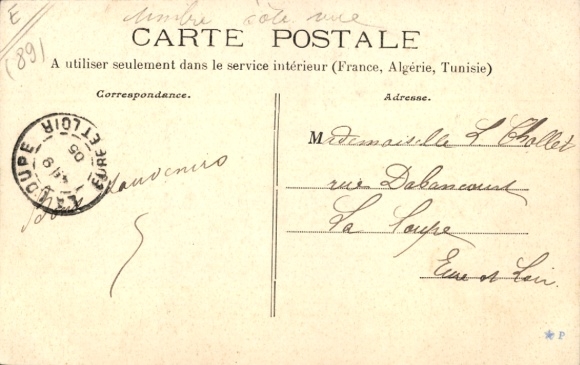 E
(89)
timbre côté vue
CARTE POSTALE
A utiliser seulement dans le service intérieur (France, Algérie, Tunisie)
Correspondance.
Adresse.
LA LOUPE
EURE ET LOIR
05
Mademoiselle L Chollet
rue Dabancourt
La Loupe
Eure et Loir
souvenirs
* P